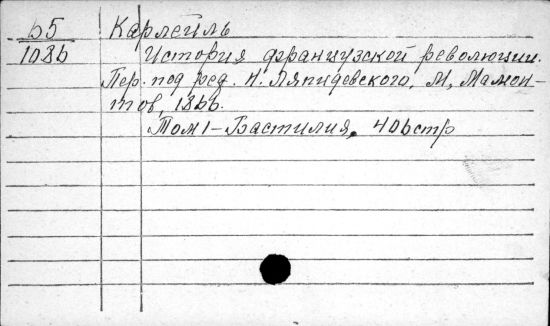 Б5 Карлейль
1086 История французской революции.
Пер. под ред. Н. Ляпидевского, М, Мамон-
тов, 1866.
Том 1 - Бастилия. 406 стр